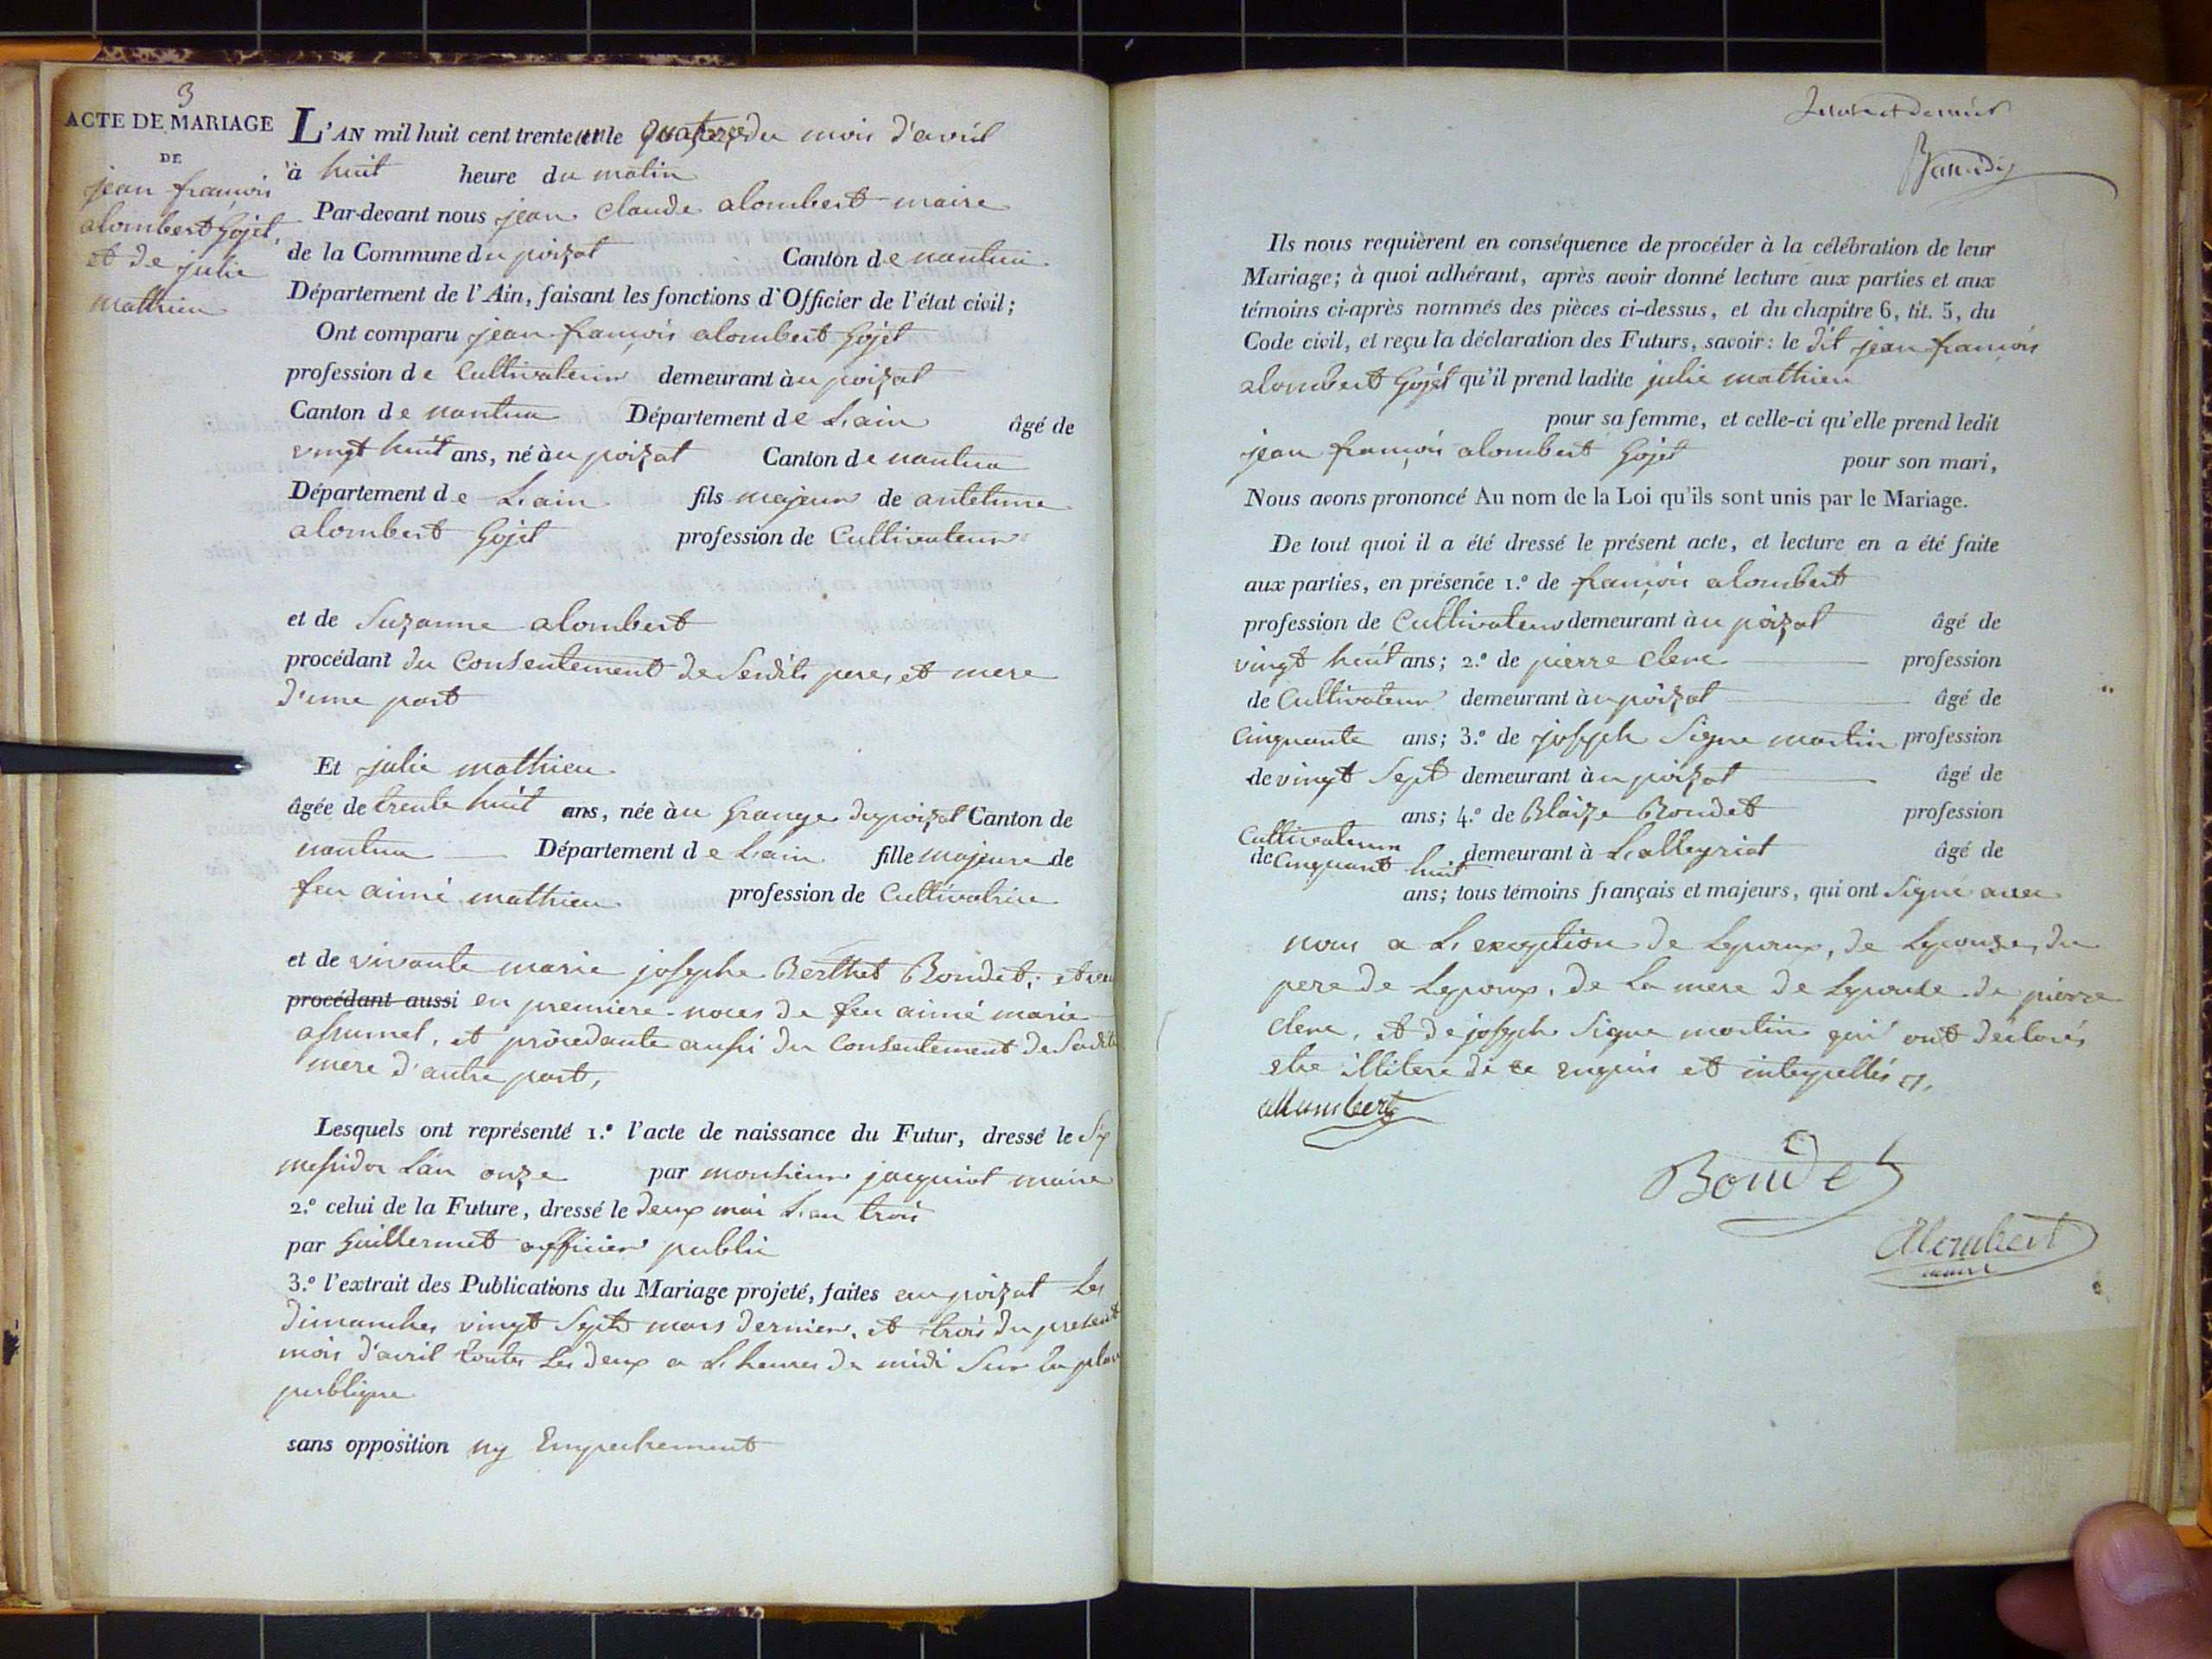 3
ACTE DE MARIAGE
DE
jean françois
alombert Gojet,
et de julie
mathieu
L'AN mil huit cent trente un le quatorze du mois d'avril
à huit heure du matin
Par-devant nous jean Claude alombert maire
de la Commune du poizat Canton de nantua
Département de l'Ain, faisant les fonctions d'Officier de l'état civil;
Ont comparu jean françois alombert Gojet
profession de Cultivateur demeurant àu poizat
Canton de nantua Département de L'ain âgé de
vingt huit ans, né àu poizat Canton de nantua
Département de L'ain fils majeur de antelme
alombert Gojet profession de Cultivateur
et de Suzanne alombert
procédant du Consentement de Sesdits pere, et mere
d'une part
Et julie mathieu
âgée de trente huit ans, née àu Grange du poizat Canton de
nantua Département de L'ain fille majeure de
feu aimé mathieu profession de Cultivatrice
et de vivante marie josephe Berthet Bondet; et
procédant aussi en premiere noces de feu aimé marie
assumel, et procedante aussi du Consentement de Sadite
mere d'autre part,
Lesquels ont représenté 1.º l'acte de naissance du Futur, dressé le Six
messidor L'an onze par monsieur jacquiot maire
2.º celui de la Future, dressé le deux mai L'an trois
par Guillermet officier public
3.º l'extrait des Publications du Mariage projeté, faites au poizat Les
dimanches vingt Sept mars dernier, et trois du present
mois d'avril toutes Les deux a L'heures de midi Sur la place
publique
sans opposition ny Empechement
et dernier
Ils nous requièrent en conséquence de procéder à la célébration de leur
Mariage; à quoi adhérant, après avoir donné lecture aux parties et aux
témoins ci-après nommés des pièces ci-dessus, et du chapitre 6, tit. 5, du
Code civil, et reçu la déclaration des Futurs, savoir: le dit jean françois
alombert Gojet qu'il prend ladite julie mathieu
pour sa femme, et celle-ci qu'elle prend ledit
jean françois alombert Gojet pour son mari,
Nous avons prononcé Au nom de la Loi qu'ils sont unis par le Mariage.
De tout quoi il a été dressé le présent acte, et lecture en a été faite
aux parties, en présence 1.º de françois alombert
profession de Cultivateur demeurant àu poizat âgé de
vingt huit ans; 2.º de pierre Clerc profession
de Cultivateur demeurant àu poizat âgé de
Cinquante ans; 3.º de joseph Signe martin profession
de vingt Sept demeurant àu poizat âgé de
ans; 4.º de Blaize Bondet profession
Cultivateur
de Cinquant huit demeurant à Lalleyriat âgé de
ans; tous témoins français et majeurs, qui ont Signé avec
nous a L'exeption de Lepoux, de Lepouse, du
pere de Lepoux, de La mere de Lepouse de pierre
Clerc, et de joseph Signe martin qui ont déclarés
etre illiteré de ce enquis et interpellés
allumbert
Boudet
Alombert
maire